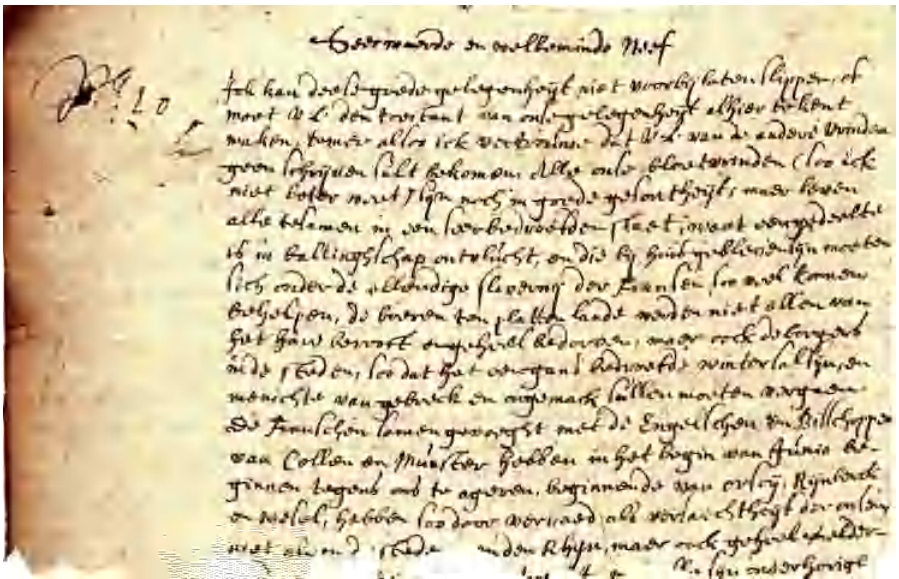 Seer waerde en welbeminde Neef
Ick kan dese goede gelegenheyt niet voorbij laten slippen, of
moet V.L. den toestant van onse gelegenheyt alhier bekent
maken, temeer alsoo ick vertrouwe dat V.L. van de andere vrinden
geen schrijven sult bekomen. Alle onse bloetvrinden (soo ick
niet beter weet) sijn noch in goede gesontheyt, maer leven
alle tesamen in een seer bedroefden staet, want een gedeelte
is in ballinghschap ontvlucht, en die bij huis gebleven sijn moeten
sich onder de ellendige slavernij der Fransen soo wel komen
behelpen, de boeren ten platten lande werden niet alleen van
het haer berooft en geheel bedorven, maer oock de borgers
in de steden, soo dat het een gans bedroefde winter sal sijn, en
menichte van gebreck en ongemack sullen moeten vergaen
De Franschen samen gevoeght met de Engelschen en Bisschoppen
van Collen en Munster hebben in het begin van Junio be-
ginnen tegens ons te ageren, beginnende van Orsoij, Rijnberck
en Wesel, hebben soo door verraed, als versaichtheyt der onsen
niet steden den Rhijn, maer oock geheel Gelder-
sijn onderhorige